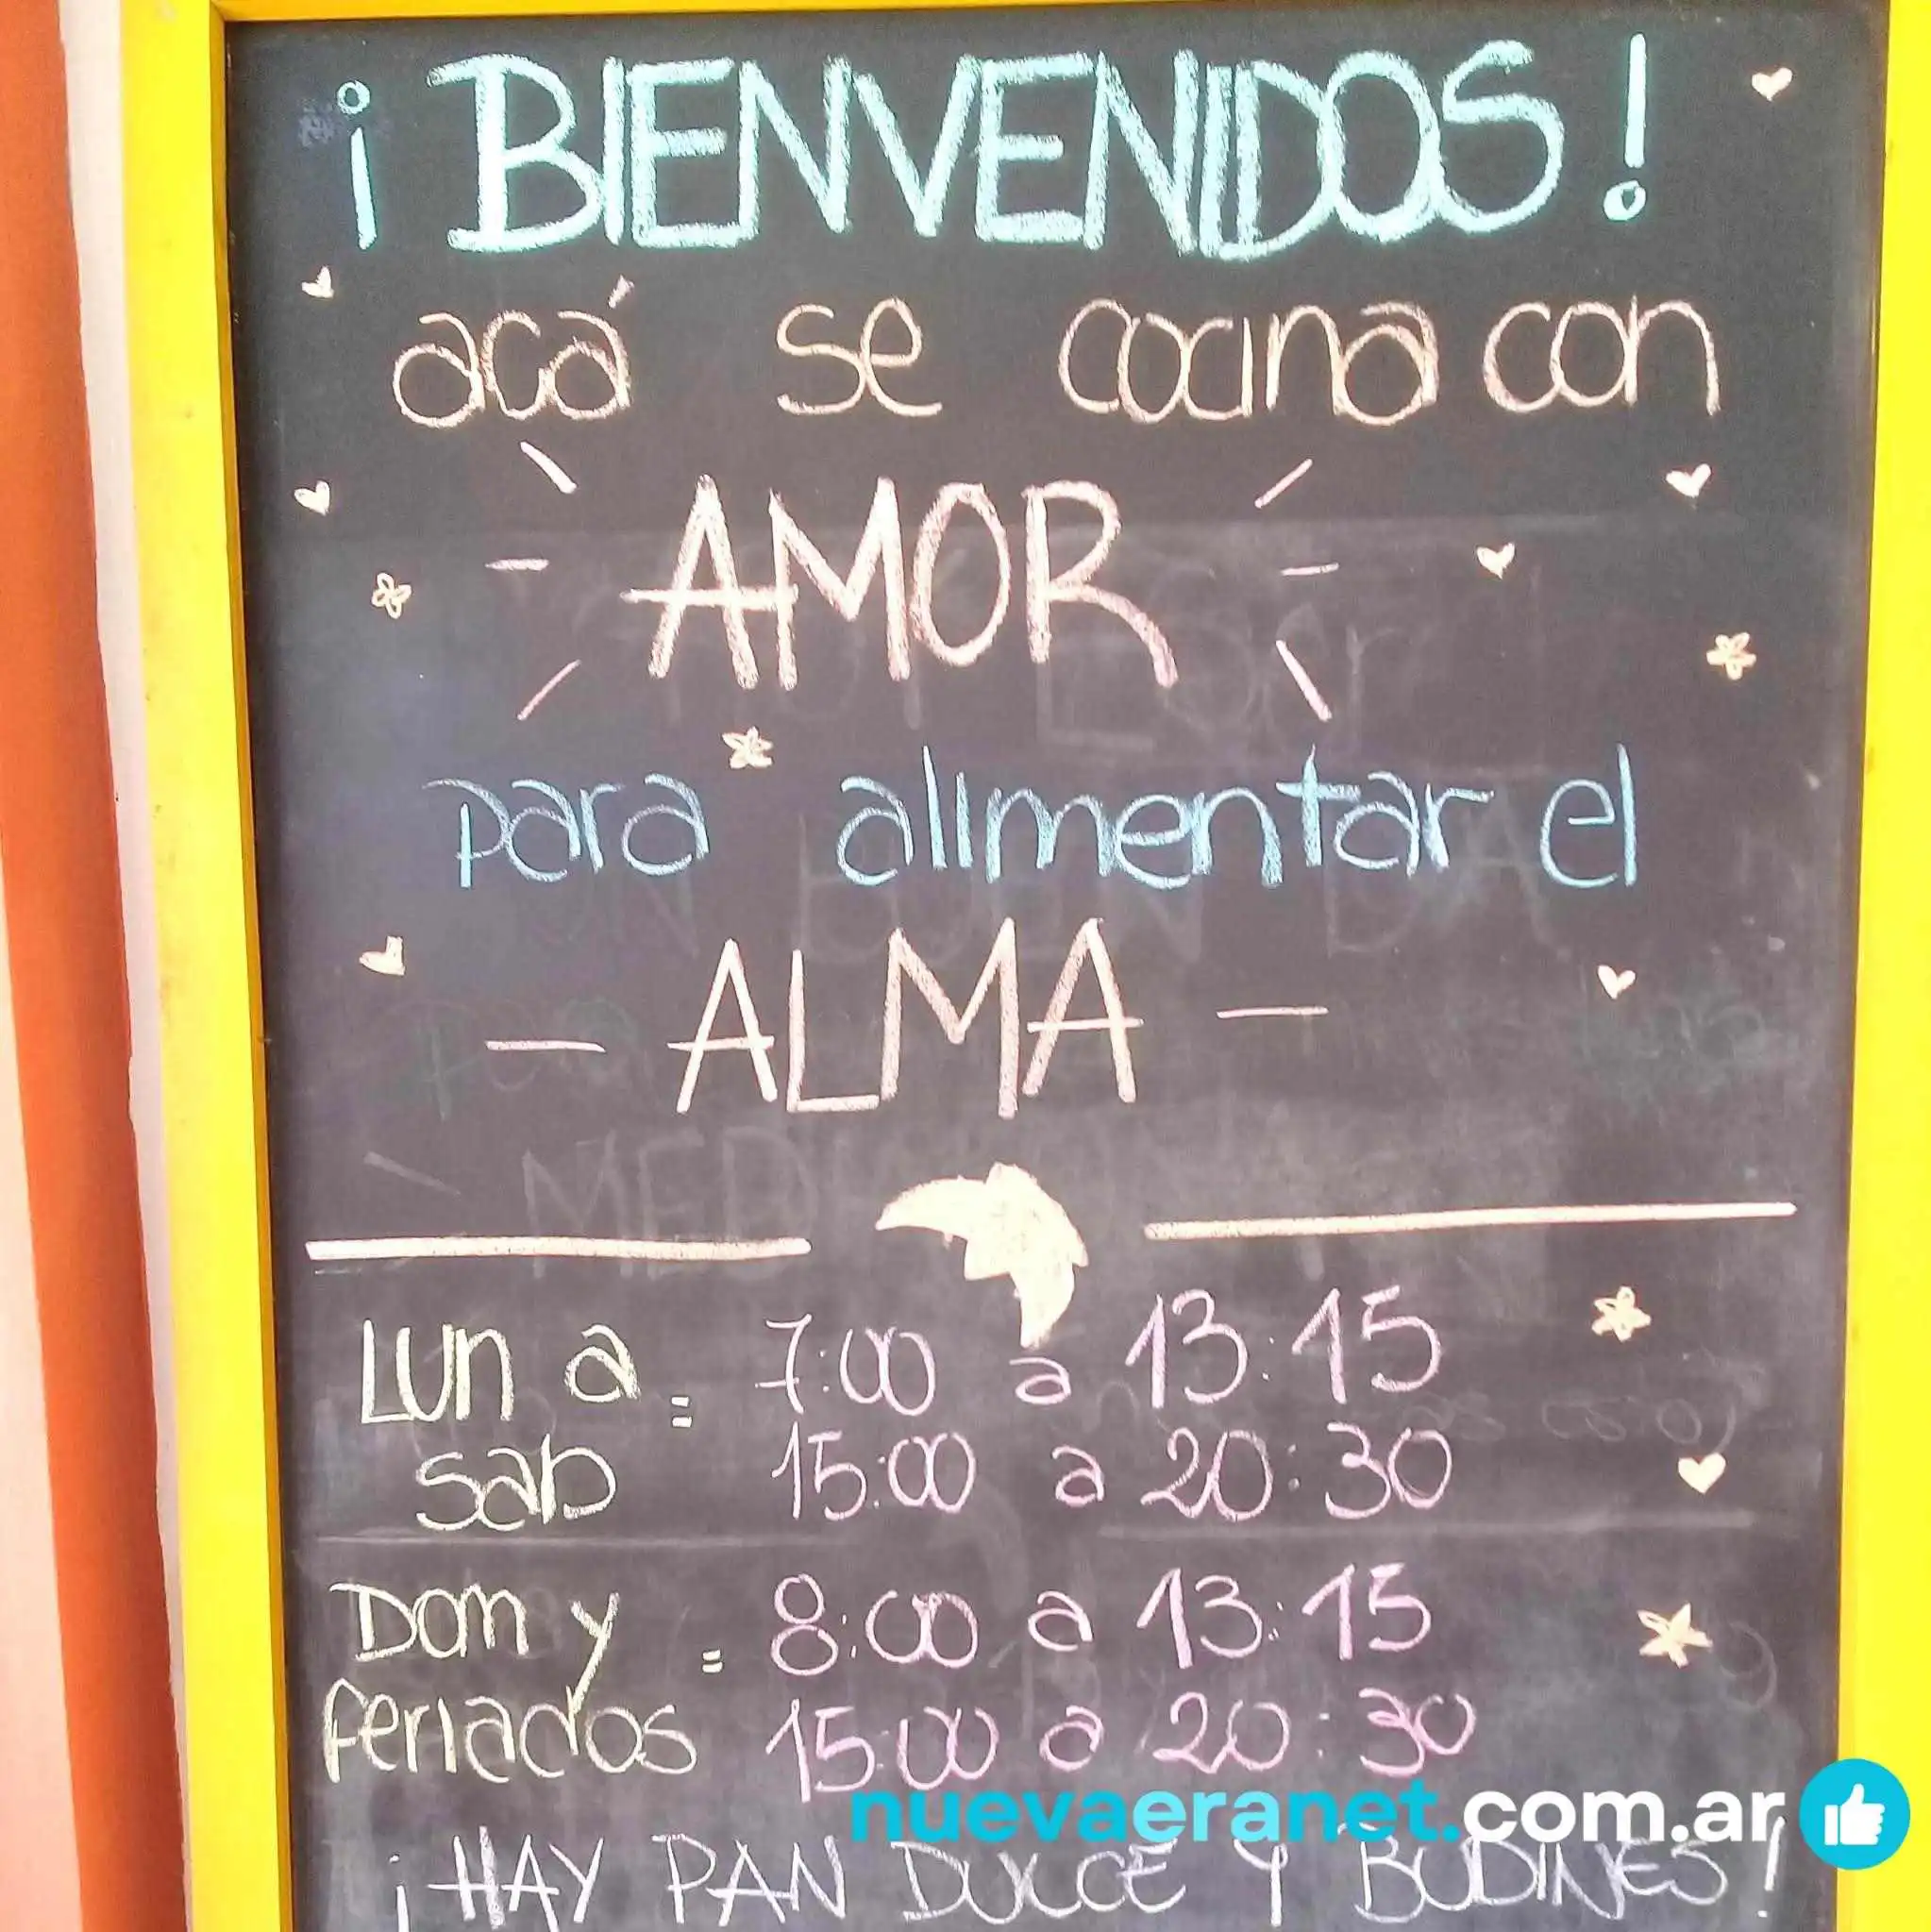 ¡BIENVENIDOS!
acá se cocina con
- AMOR -
para alimentar el
- ALMA -
Lun a = 7:00 a 13:15
sab 15:00 a 20:30
Dom y = 8:00 a 13:15
feriados 15:00 a 20:30
nuevaeranet.com.ar
¡HAY PAN DULCE Y BUDINES!